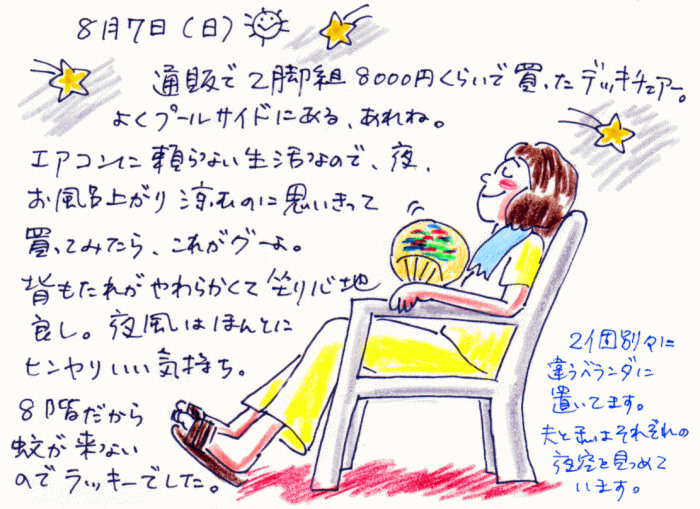 8月7日(日)
通販で2脚組8000円くらいで買ったデッキチェアー。
よくプールサイドにある、あれね。
エアコンに頼らない生活なので、夜、
お風呂上がり涼むのに思いきって
買ってみたら、これがグーよ。
背もたれがやわらかくて坐り心地
良し。夜風はほんとに
ヒンヤリいい気持ち。
8階だから
蚊が来ない
のでラッキーでした。
2個別々に
違うベランダに
置いてます。
夫と私はそれぞれの
夜空を見つめて
います。